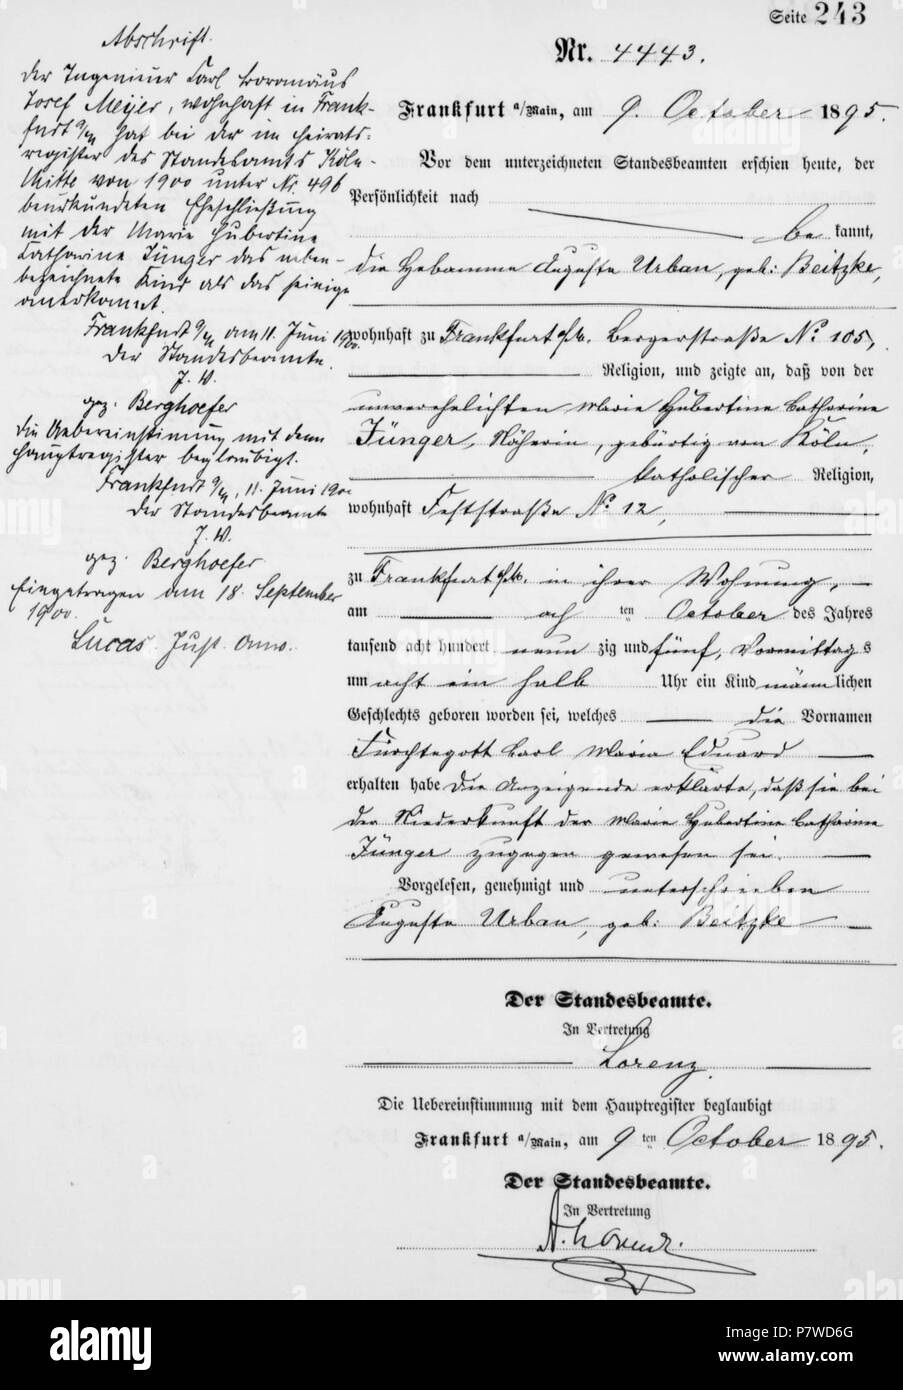 Seite 243
Nr. 4443.
Abschrift.
Der Ingenieur Carl Boromäus
Josef Meyer, wohnhaft in Frank-
furt a/M hat bei der im Heirats-
register des Standesamts Köln-
Mitte von 1900 unter Nr. 496
beurkundeten Eheschließung
mit der Marie Hubertine
Catharine Jünger das neben-
bezeichnete Kind als das seinige
anerkannt.
Frankfurt a/M am 11. Juni 1900.
Der Standesbeamte.
J. V.
gez. Berghoefer
Die Uebereinstimmung mit dem
Hauptregister beglaubigt.
Frankfurt a/M, 11. Juni 1900
Der Standesbeamte
J. V.
gez. Berghoefer
Eingetragen am 18. September
1900.
Lucas. Just. Anw.
Frankfurt a/Main, am 9. October 1895.
Vor dem unterzeichneten Standesbeamten erschien heute, der
Persönlichkeit nach
be kannt,
die Hebamme Auguste Urban, geb: Beitzke,
wohnhaft zu Frankfurt a/M. Bergerstraße No 105,
Religion, und zeigte an, daß von der
unverehelichten Marie Hubertine Catharine
Jünger, Näherin, gebürtig von Köln,
katholischer Religion,
wohnhaft Feststraße No 12,
zu Frankfurt a/M. in ihrer Wohnung,
am ach ten October des Jahres
tausend acht hundert neun zig und fünf, Vormittag s
um acht ein halb Uhr ein Kind männ lichen
Geschlechts geboren worden sei, welches die Vornamen
Fürchtegott Carl Maria Eduard
erhalten habe Die Anzeigende erklärte, daß sie bei
der Niederkunft der Marie Hubertine Catharine
Jünger zugegen gewesen sei.
Vorgelesen, genehmigt und unterschrieben
Auguste Urban, geb: Beitzke
Der Standesbeamte.
In Vertretung
Lorenz.
Die Uebereinstimmung mit dem Hauptregister beglaubigt
Frankfurt a/Main, am 9 ten October 1895.
Der Standesbeamte.
In Vertretung
alamy
Image ID: P7WD6G
www.alamy.com